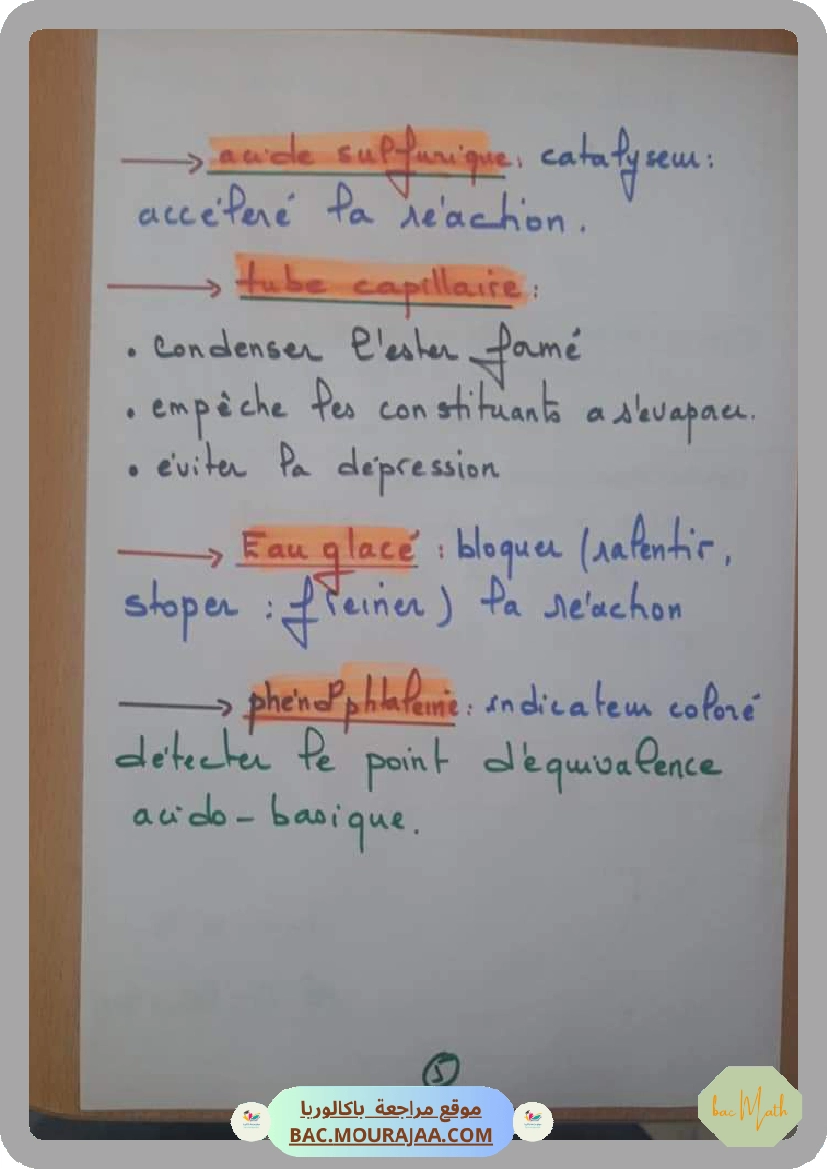 → acide sulfurique : catalyseur :
accéleré la réaction.
→ tube capillaire :
• condenser l'ester formé
• empêche les constituants a s'évaporer.
• éviter la dépression
→ Eau glacé : bloquer (ralentir,
stoper : freiner) la réaction
→ phénolphtaleine : indicateur coloré
détecter le point d'équivalence
acido-basique.
5
موقع مراجعة باكالوريا
BAC.MOURAJAA.COM
bac Math